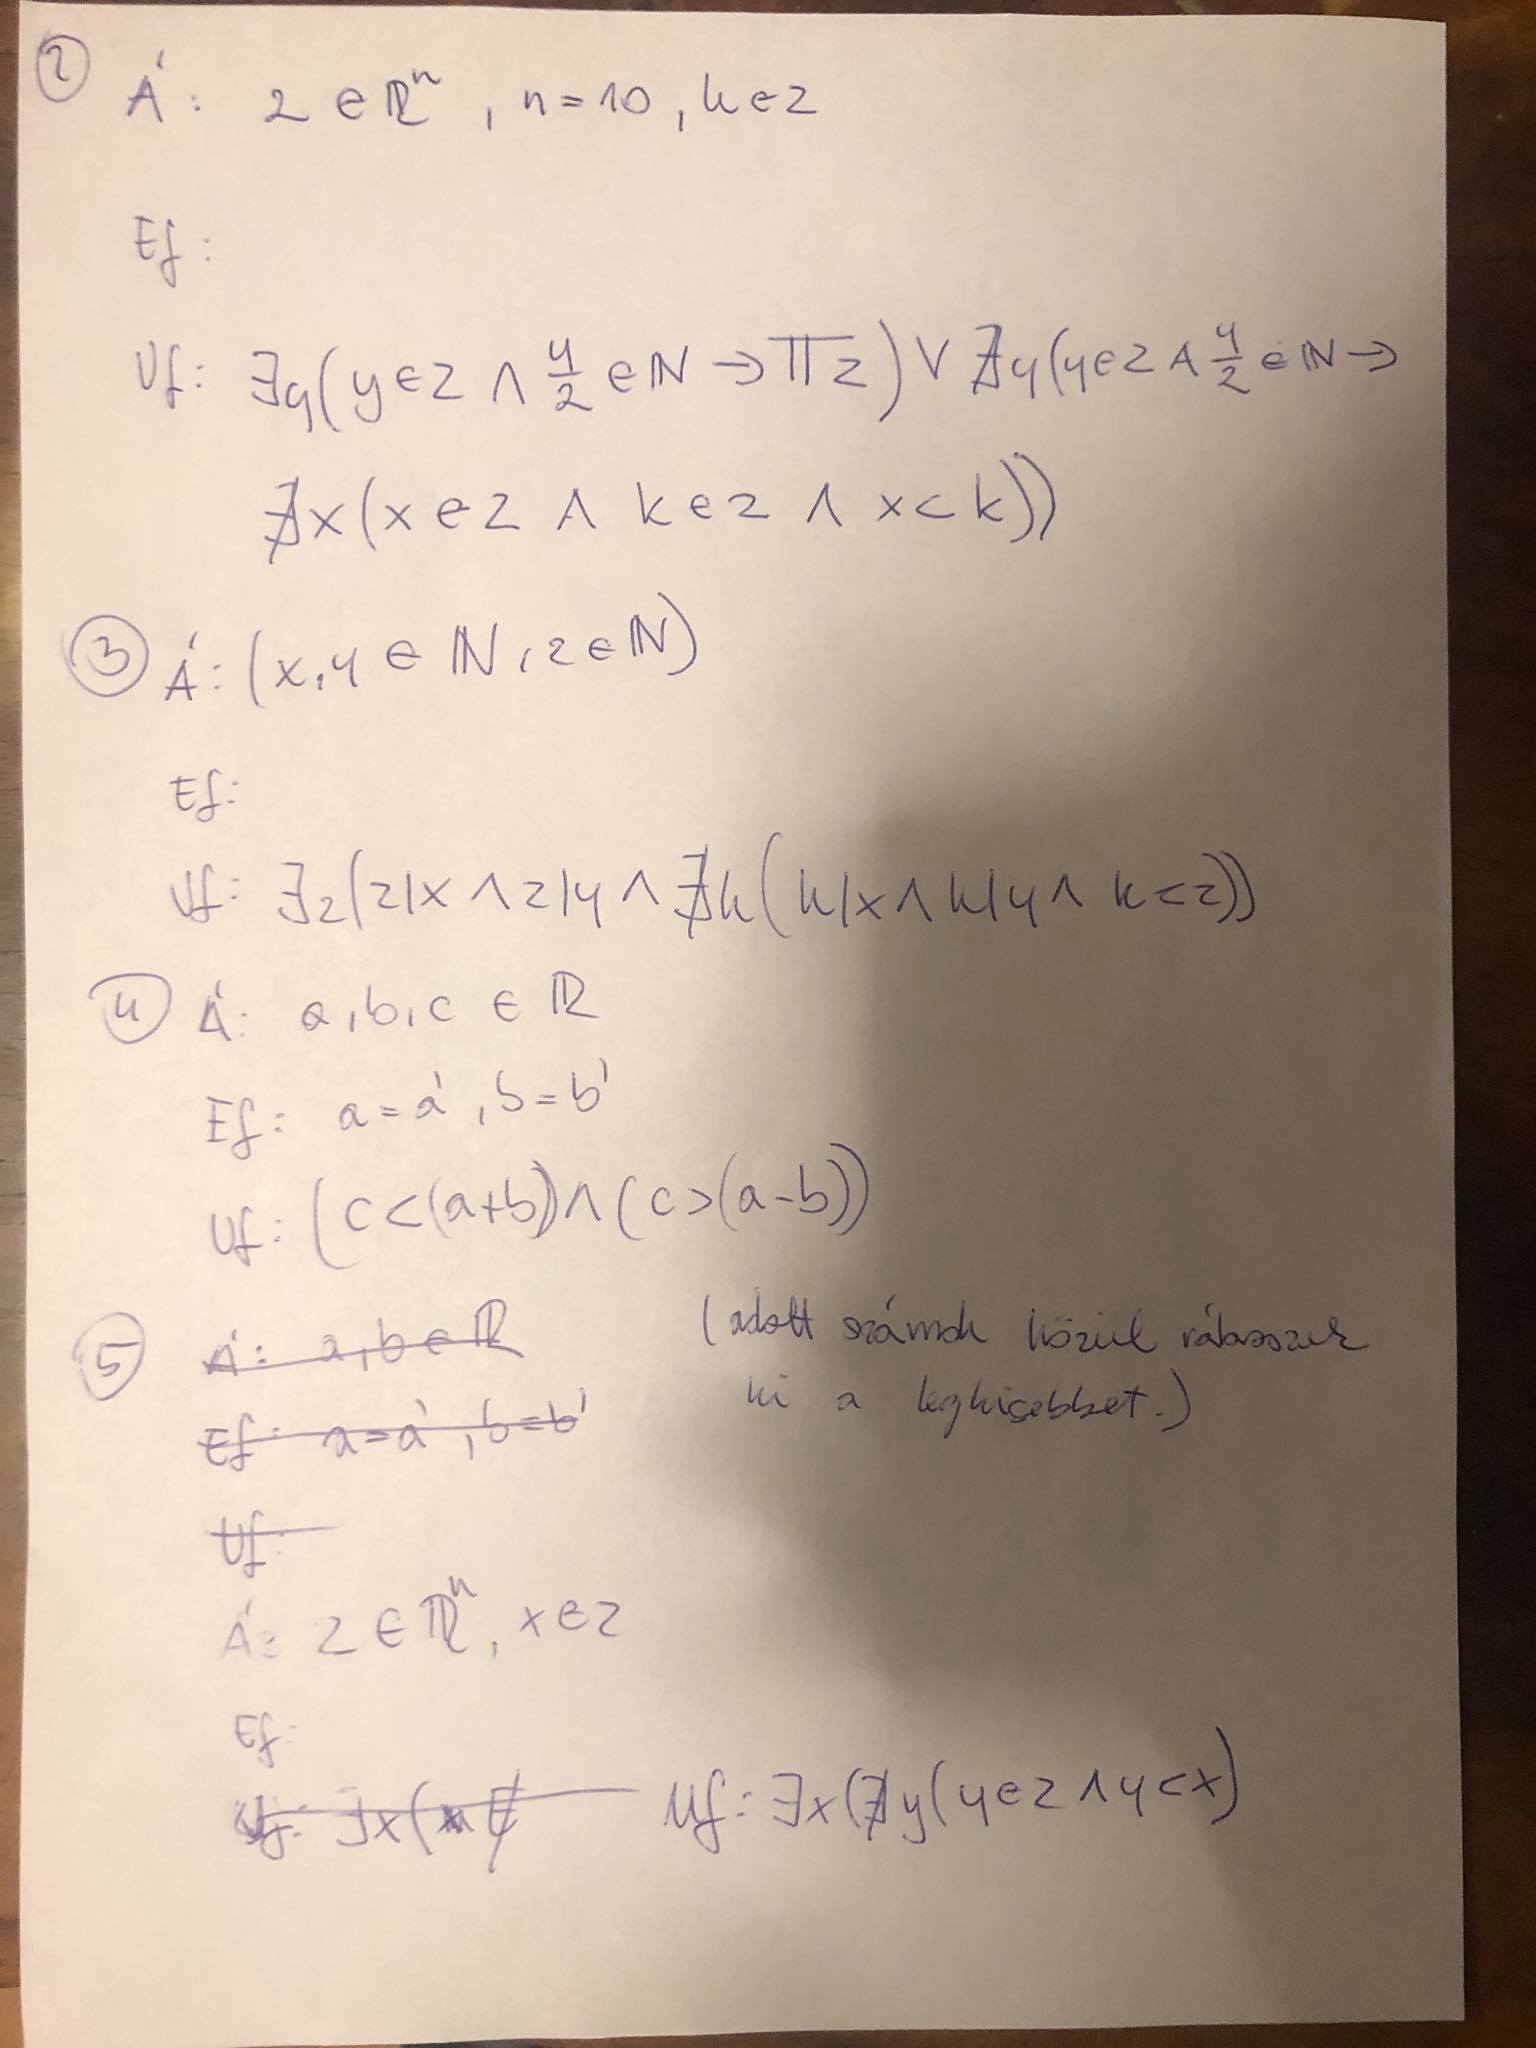 2
Á: z ∈ ℝⁿ, n=10, k∈z
Ef:
Uf: ∃y(y∈z ∧ y/2 ∈ ℕ → Πz) ∨ ∄y(y∈z ∧ y/2 ∈ ℕ →
∄x(x∈z ∧ k∈z ∧ x<k))
3 Á: (x,y ∈ ℕ, z∈ℕ)
Ef:
Uf: ∃z(z|x ∧ z|y ∧ ∄k(k|x ∧ k|y ∧ k<z))
4 Á: a,b,c ∈ ℝ
Ef: a=a', b=b'
Uf: (c<(a+b)) ∧ (c>(a-b))
5 Á: a,b∈ℝ (adott számok közül válasszuk
Ef: a=a', b=b' ki a legkisebbet.)
Uf:
Á: z ∈ ℝⁿ, x∈z
Ef:
Uf: ∃x( Uf: ∃x(∄y(y∈z ∧ y<x)